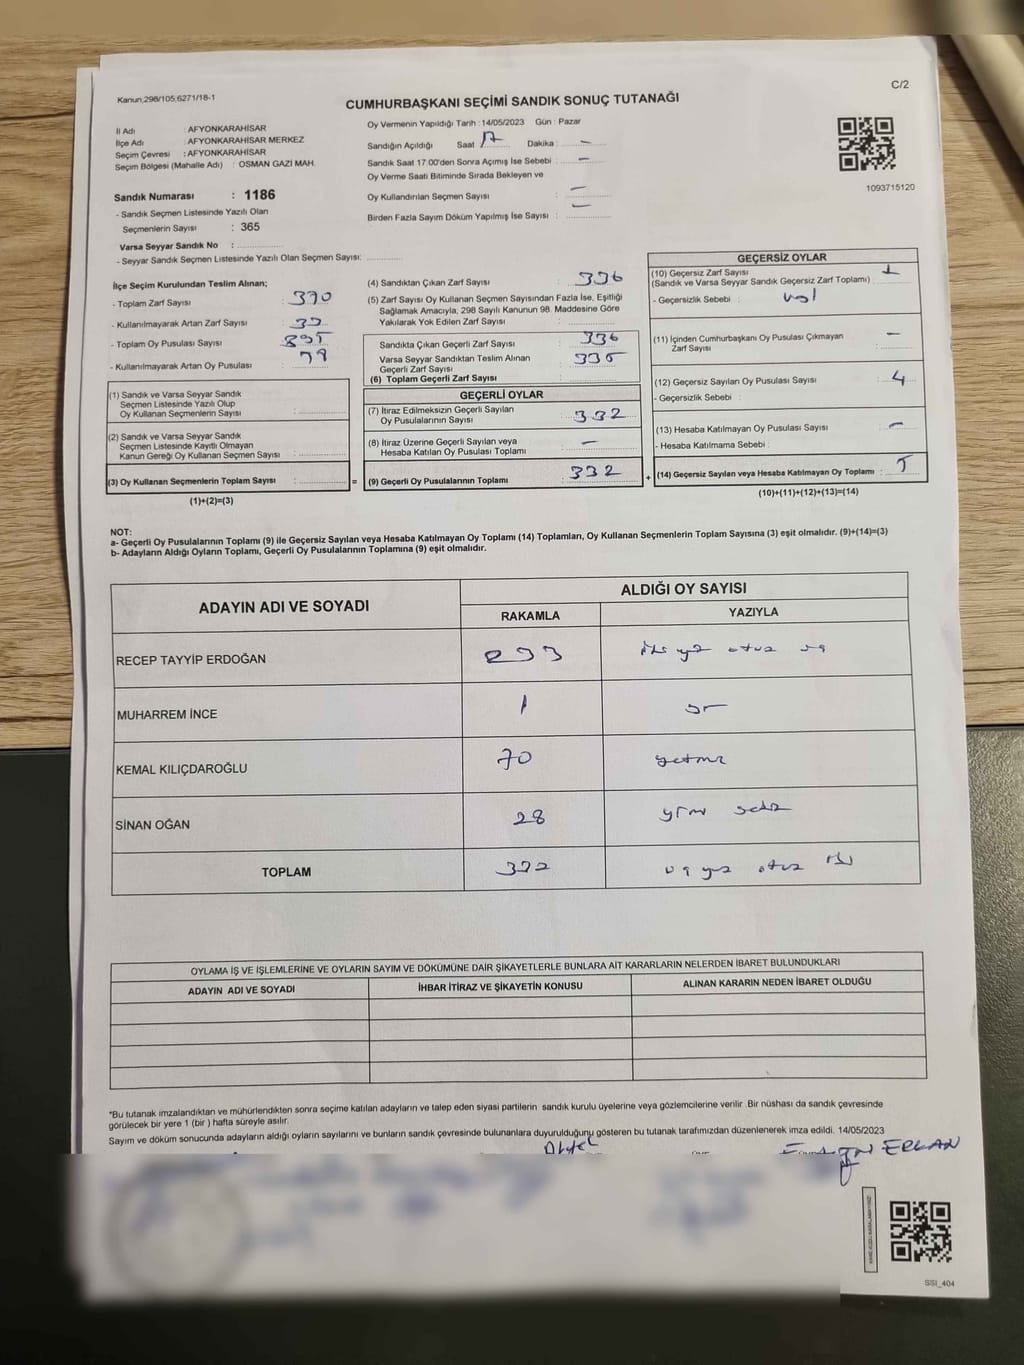 Kanun;298/105;6271/18-1
C/2
CUMHURBAŞKANI SEÇİMİ SANDIK SONUÇ TUTANAĞI
İl Adı : AFYONKARAHİSAR
İlçe Adı : AFYONKARAHİSAR MERKEZ
Seçim Çevresi : AFYONKARAHİSAR
Seçim Bölgesi (Mahalle Adı) : OSMAN GAZİ MAH.
Oy Vermenin Yapıldığı Tarih : 14/05/2023 Gün : Pazar
Sandığın Açıldığı Saat 17 Dakika : -
Sandık Saat 17:00'den Sonra Açımış İse Sebebi : -
Oy Verme Saati Bitiminde Sırada Bekleyen ve
Oy Kullandırılan Seçmen Sayısı : -
Birden Fazla Sayım Döküm Yapılmış İse Sayısı : -
1093715120
Sandık Numarası : 1186
- Sandık Seçmen Listesinde Yazılı Olan
Seçmenlerin Sayısı : 365
Varsa Seyyar Sandık No :
- Seyyar Sandık Seçmen Listesinde Yazılı Olan Seçmen Sayısı:
İlçe Seçim Kurulundan Teslim Alınan;
- Toplam Zarf Sayısı : 370
- Kullanılmayarak Artan Zarf Sayısı :
- Toplam Oy Pusulası Sayısı :
- Kullanılmayarak Artan Oy Pusulası :
(1) Sandık ve Varsa Seyyar Sandık
Seçmen Listesinde Yazılı Olup
Oy Kullanan Seçmenlerin Sayısı :
(2) Sandık ve Varsa Seyyar Sandık
Seçmen Listesinde Kayıtlı Olmayan
Kanun Gereği Oy Kullanan Seçmen Sayısı :
(3) Oy Kullanan Seçmenlerin Toplam Sayısı : =
(1)+(2)=(3)
(4) Sandıktan Çıkan Zarf Sayısı : 336
(5) Zarf Sayısı Oy Kullanan Seçmen Sayısından Fazla İse, Eşitliği
Sağlamak Amacıyla, 298 Sayılı Kanunun 98. Maddesine Göre
Yakılarak Yok Edilen Zarf Sayısı :
Sandıkta Çıkan Geçerli Zarf Sayısı : 336
Varsa Seyyar Sandıktan Teslim Alınan
Geçerli Zarf Sayısı : 335
(6) Toplam Geçerli Zarf Sayısı :
GEÇERLİ OYLAR
(7) İtiraz Edilmeksizin Geçerli Sayılan
Oy Pusulalarının Sayısı : 332
(8) İtiraz Üzerine Geçerli Sayılan veya
Hesaba Katılan Oy Pusulası Toplamı : -
(9) Geçerli Oy Pusulalarının Toplamı : 332 +
GEÇERSİZ OYLAR
(10) Geçersiz Zarf Sayısı : 1
(Sandık ve Varsa Seyyar Sandık Geçersiz Zarf Toplamı)
- Geçersizlik Sebebi :
(11) İçinden Cumhurbaşkanı Oy Pusulası Çıkmayan
Zarf Sayısı : -
(12) Geçersiz Sayılan Oy Pusulası Sayısı : 4
- Geçersizlik Sebebi :
(13) Hesaba Katılmayan Oy Pusulası Sayısı : -
- Hesaba Katılmama Sebebi :
(14) Geçersiz Sayılan veya Hesaba Katılmayan Oy Toplamı : 5
(10)+(11)+(12)+(13)=(14)
NOT:
a- Geçerli Oy Pusulalarının Toplamı (9) ile Geçersiz Sayılan veya Hesaba Katılmayan Oy Toplamı (14) Toplamları, Oy Kullanan Seçmenlerin Toplam Sayısına (3) eşit olmalıdır. (9)+(14)=(3)
b- Adayların Aldığı Oyların Toplamı, Geçerli Oy Pusulalarının Toplamına (9) eşit olmalıdır.
ADAYIN ADI VE SOYADI
ALDIĞI OY SAYISI
RAKAMLA YAZIYLA
RECEP TAYYİP ERDOĞAN 233 iki yüz otuz üç
MUHARREM İNCE 1 bir
KEMAL KILIÇDAROĞLU 70 yetmiş
SİNAN OĞAN 28 yirmi sekiz
TOPLAM 332 üç yüz otuz iki
OYLAMA İŞ VE İŞLEMLERİNE VE OYLARIN SAYIM VE DÖKÜMÜNE DAİR ŞİKAYETLERLE BUNLARA AİT KARARLARIN NELERDEN İBARET BULUNDUKLARI
ADAYIN ADI VE SOYADI İHBAR İTİRAZ VE ŞİKAYETİN KONUSU ALINAN KARARIN NEDEN İBARET OLDUĞU
*Bu tutanak imzalandıktan ve mühürlendikten sonra seçime katılan adayların ve talep eden siyasi partilerin sandık kurulu üyelerine veya gözlemcilerine verilir .Bir nüshası da sandık çevresinde
görülecek bir yere 1 (bir ) hafta süreyle asılır.
Sayım ve döküm sonucunda adayların aldığı oyların sayılarını ve bunların sandık çevresinde bulunanlara duyurulduğunu gösteren bu tutanak tarafımızdan düzenlenerek imza edildi. 14/05/2023
ERCAN
SSI_404